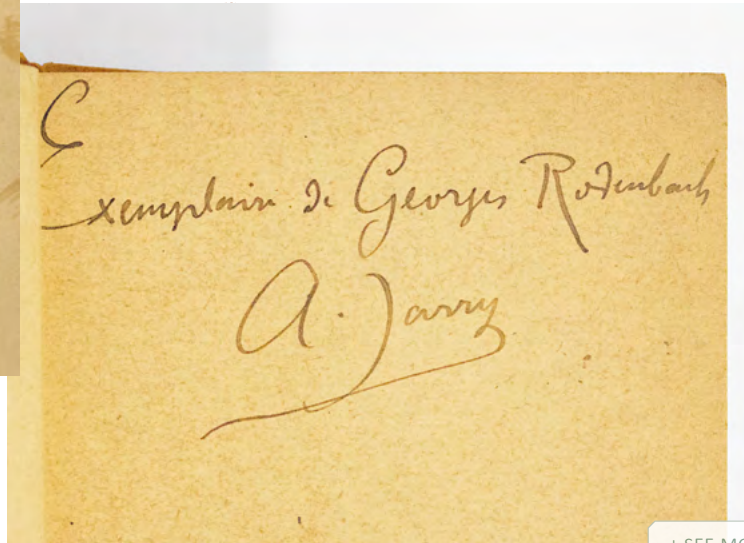 Exemplaire de Georges Rodenbach
A. Jarry
+ SEE MO